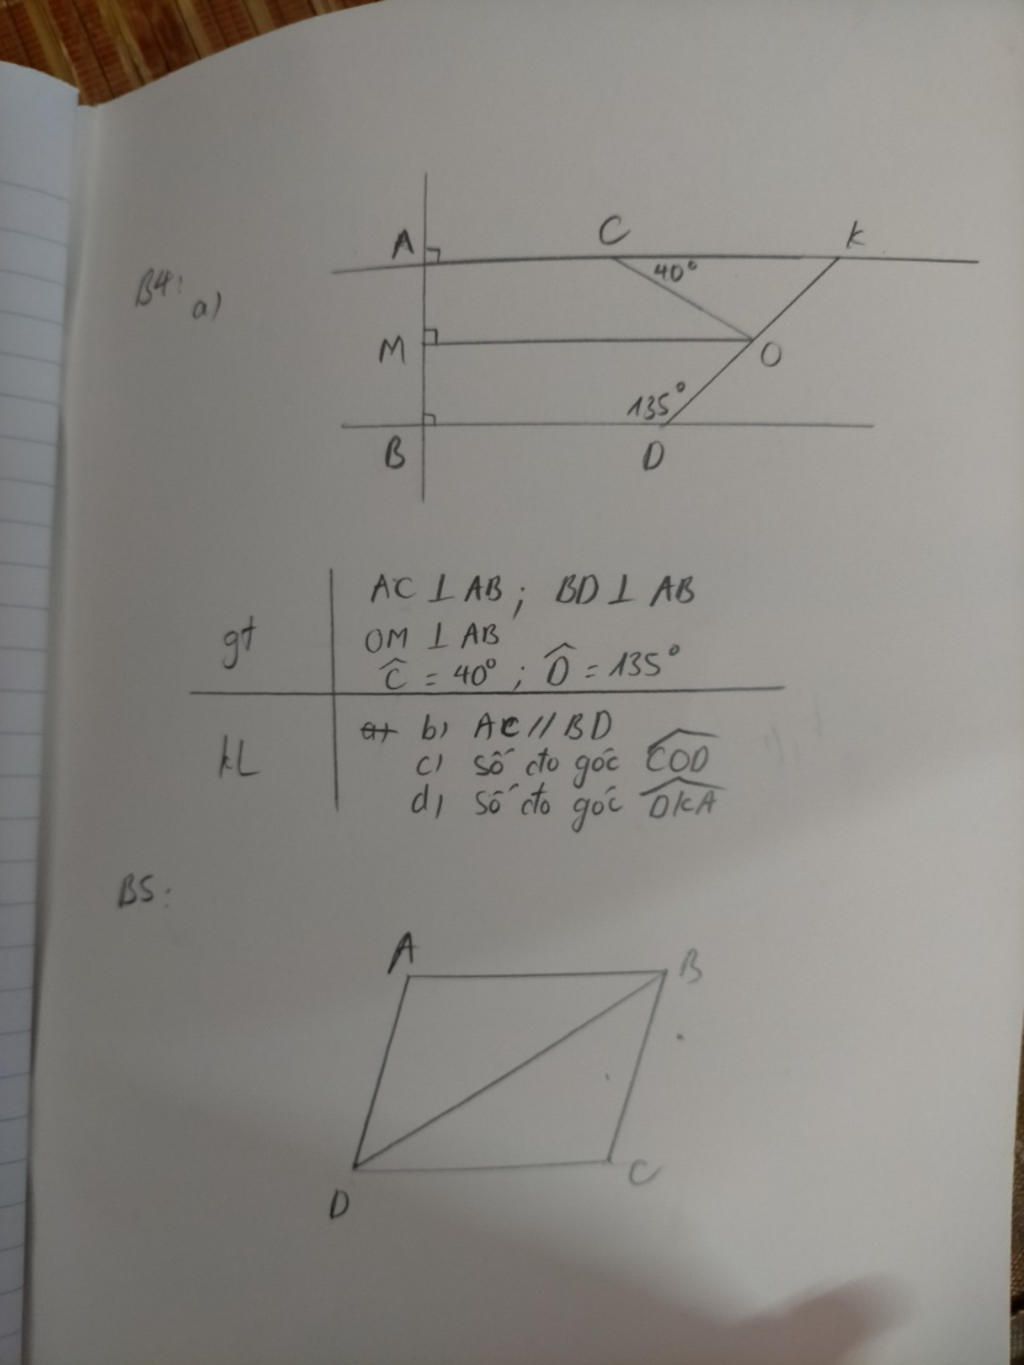 B4:
a)
A C K
40°
M O
135°
B D
gt
AC ⊥ AB ; BD ⊥ AB
OM ⊥ AB
Ĉ = 40° ; D̂ = 135°
kL
a) b) AC // BD
c) số đo góc COD
d) số đo góc DKA
B5:
A B
D C